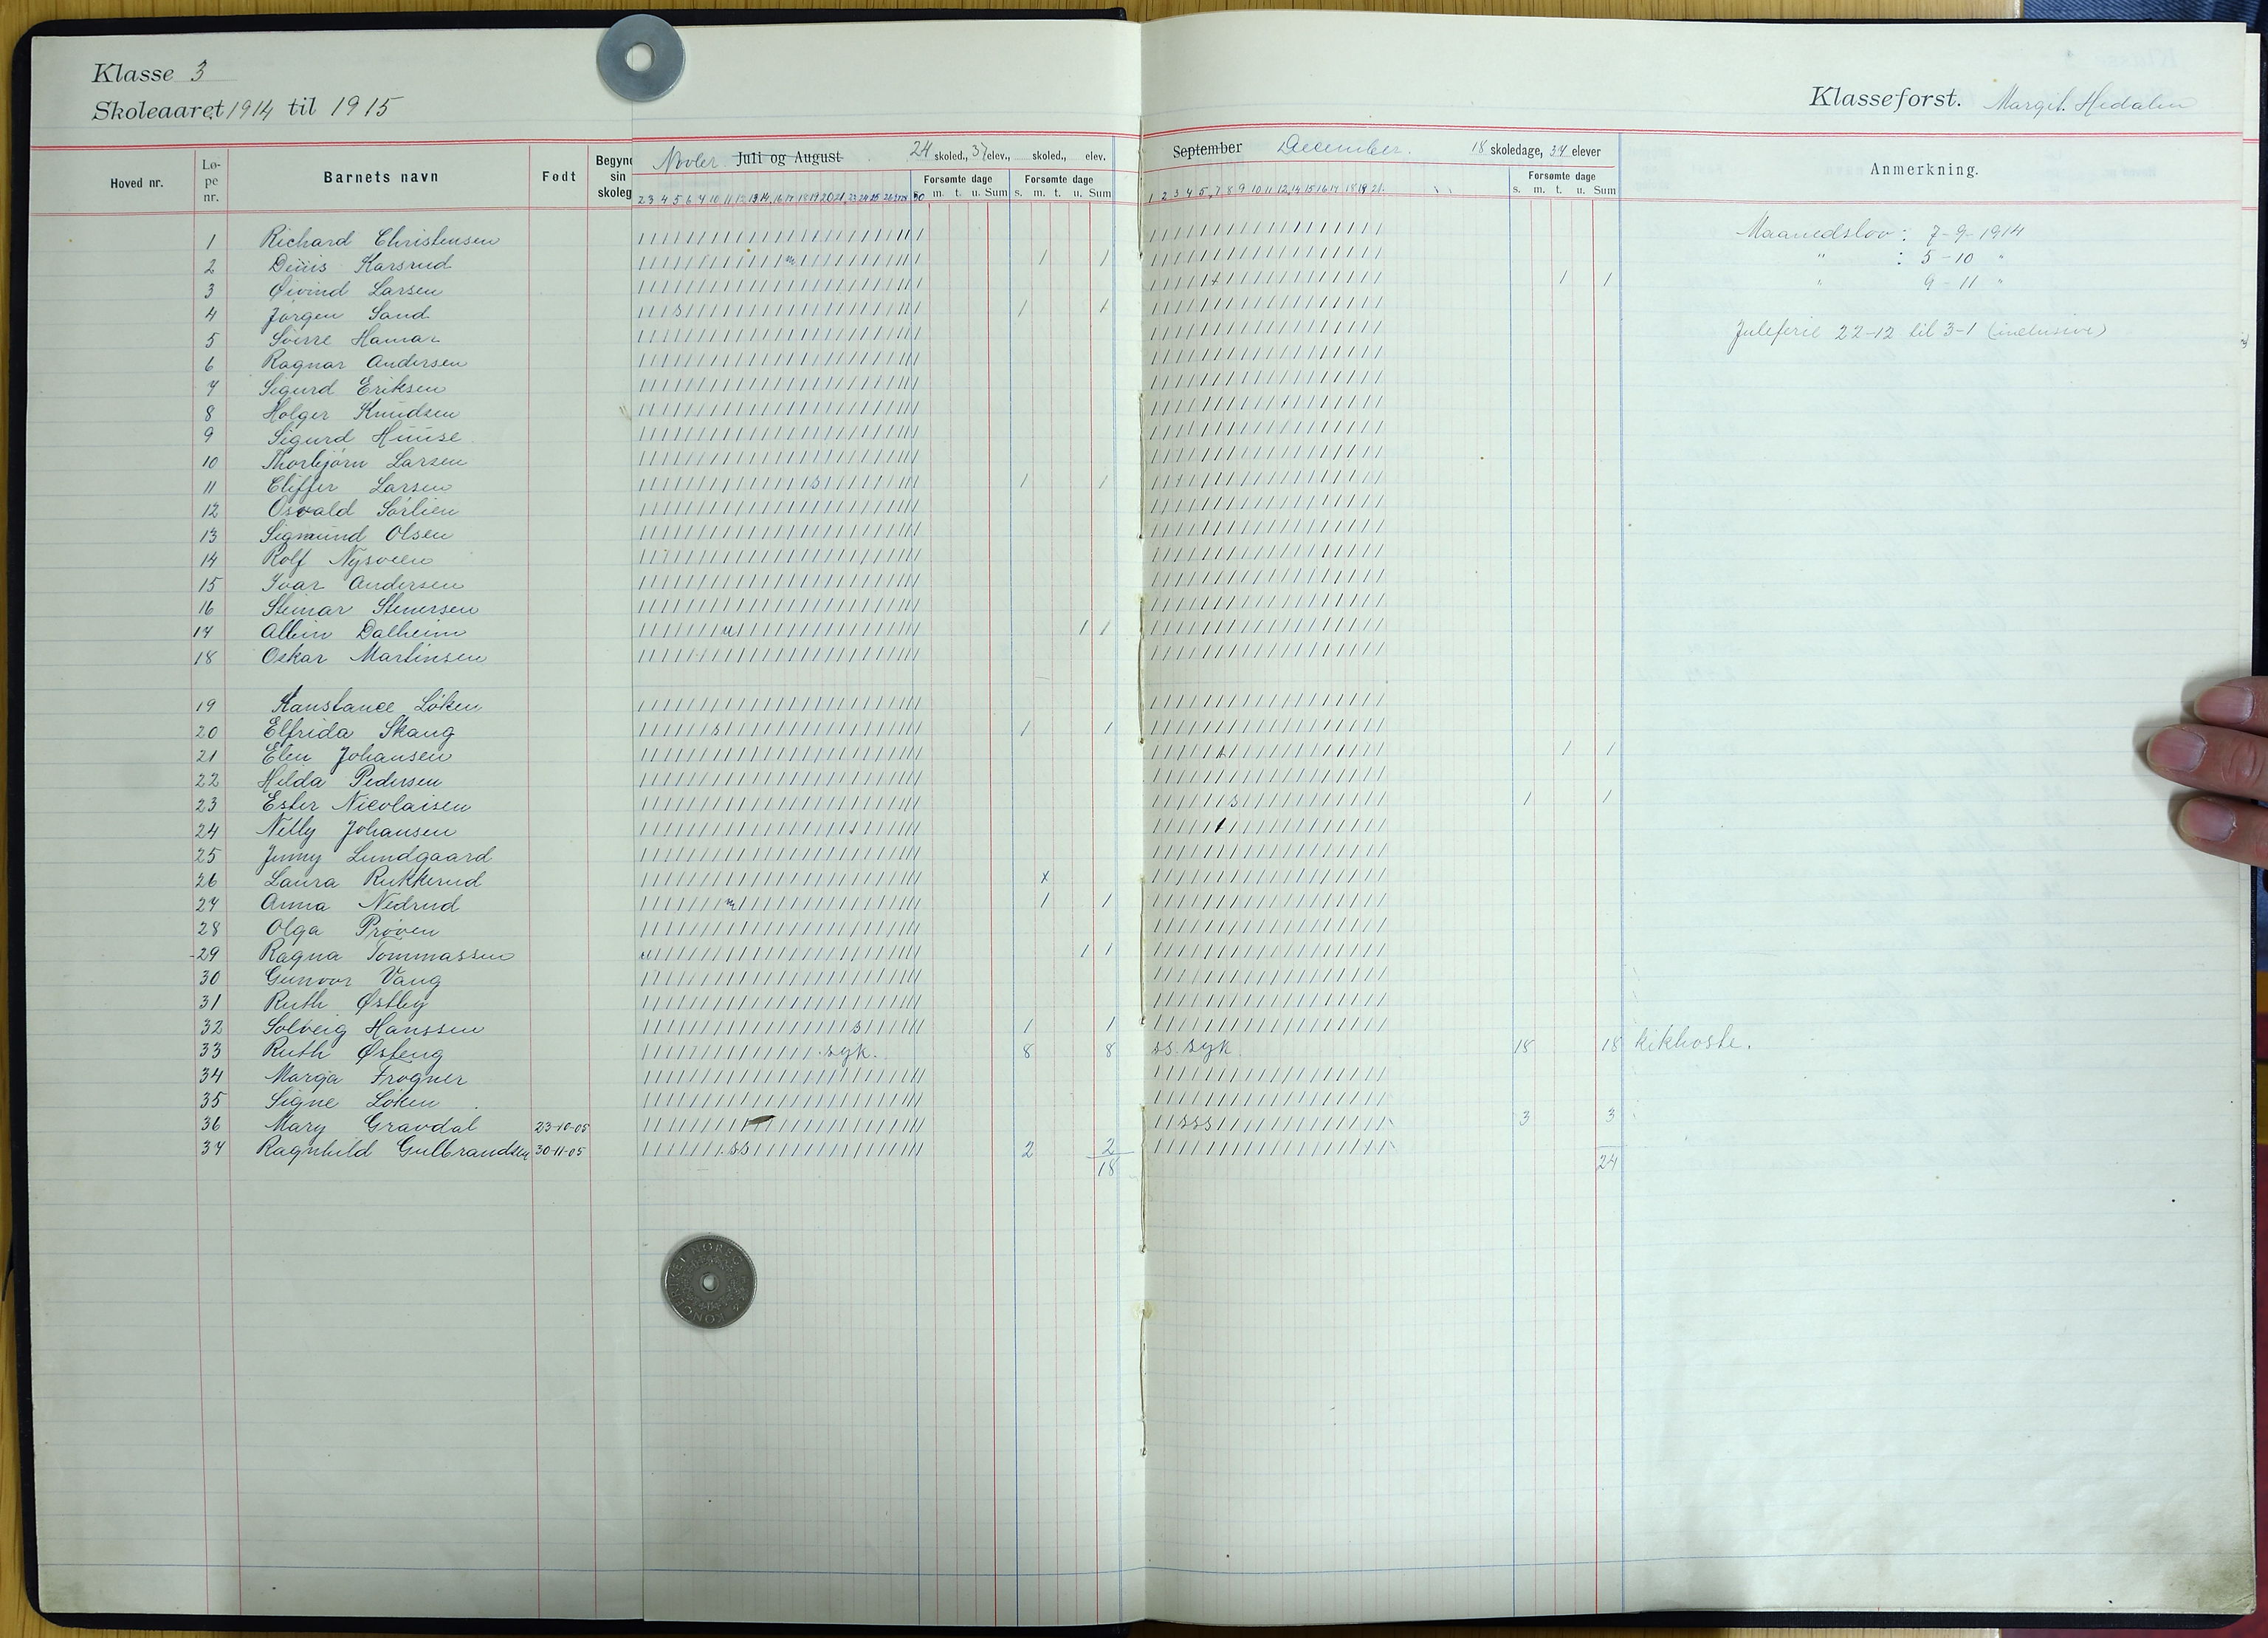 Klasse 3
Skoleaaret 1914 til 1915
Klasseforst. Margit Hedalen
Hoved nr.
Lø-
pe
nr.
Barnets navn
Født
sin
skoleg
Novbr. Juli og August
24 skoled., 37 elev., skoled., elev.
Forsømte dage Forsømte dage
m. t. u. Sum s. m. t. u. Sum
September December.
18 skoledage, 37 elever
Forsømte dage
s. m. t. u. Sum
Anmerkning.
1 Richard Christensen
Maanedslov: 7-9-1914
2 Karsrud 1 1
" : 5-10 "
3 Øivind Larsen 1 1
" 9-11 "
4 Jørgen Sand s 1 1
5 Sverre Hamar
Juleferie 22-12 til 3-1 (inclusive)
6 Ragnar Andersen
7 Sigurd Eriksen
8 Holger Knudsen
9 Sigurd Huuse
10 Thorbjørn Larsen
11 Eliffer Larsen s 1 1
12 Osvald Sørlien
13 Sigmund Olsen
14 Rolf Nysveen
15 Ivar Andersen
16 Steinar Stenersen
17 Albin Dalheim u 1 1
18 Oskar Martinsen
19 Konstance Løken
20 Elfrida Skaug s 1 1
21 Elen Johansen 1 1
22 Hilda Pedersen
23 Ester Nicolaisen s 1 1
24 Nelly Johansen
25 Jenny Lundgaard
26 Laura Rukkerud x
27 Anna Nedrud m 1 1
28 Olga Prøven
29 Ragna Tommassen u 1 1
30 Gunvor Vang
31 Ruth Østby
32 Solveig Hanssen s 1 1
33 Ruth Østeng syk. 8 8 ss. syk. 18 18 kikhoste.
34 Marga Frogner
35 Signe Løken
36 Mary Gravdal 23-10-05 sss 3 3
37 Ragnhild Gulbrandsen 30-11-05 ss 2 2
18 24